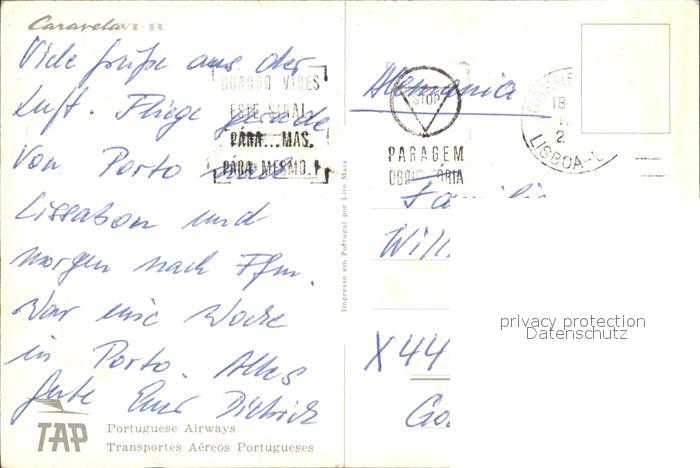 Caravela VI-R
Viele Grüße aus der
Luft. Fliege gerade
von Porto nach
Lissabon und
morgen nach Ffm.
War eine Woche
in Porto. Alles
Gute Euer Dietrich
TAP
Portuguese Airways
Transportes Aéreos Portugueses
QUANDO VIRES
ESTE SINAL
PÁRA...MAS.
PÁRA MESMO!
Impresso em Portugal por Lito Maia
Alemania
STOP
PARAGEM
OBRIGATORIA
CORRE
18
2
LISBOA-L
Familie
Will
X 44
Go
privacy protection
Datenschutz